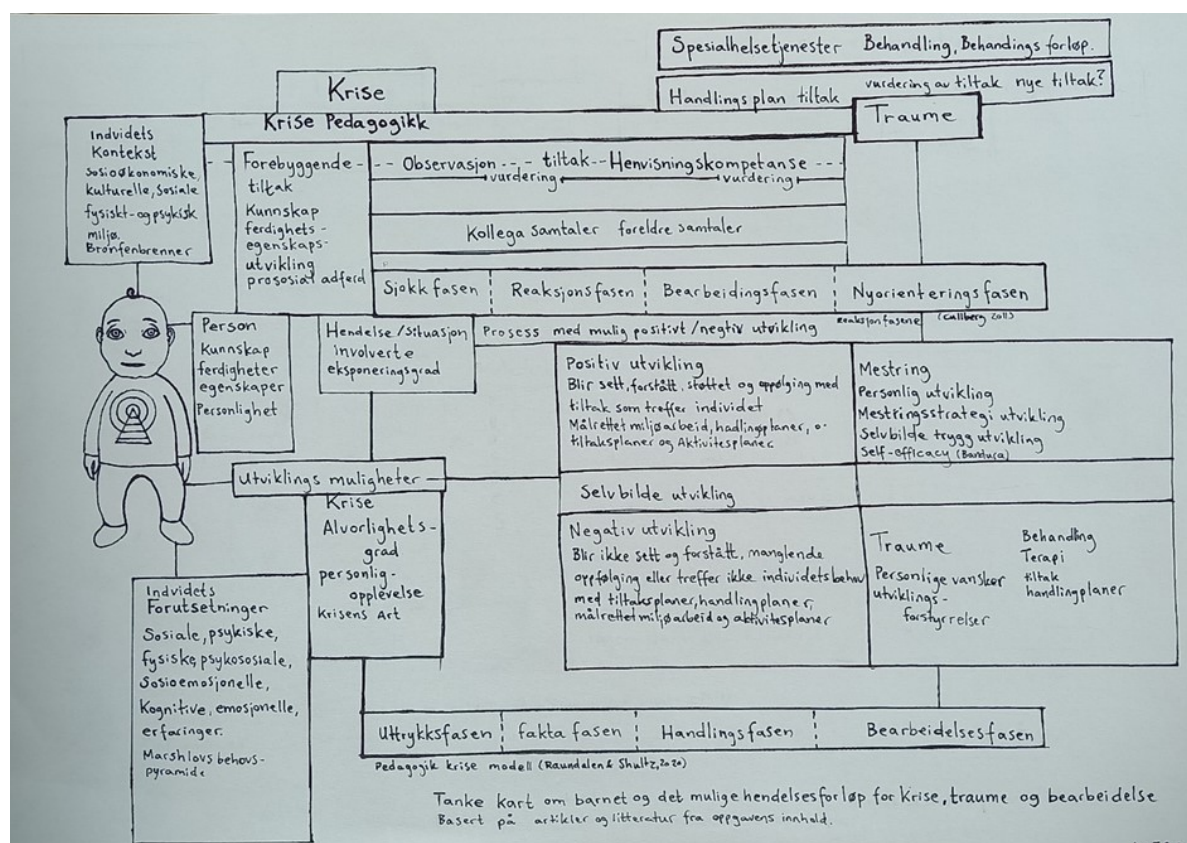 Spesialhelsetjenester Behandling, Behandings forløp.
vurdering av tiltak nye tiltak?
Handlingsplan tiltak
Krise
Krise Pedagogikk
Traume
Indvidets
Kontekst
sosioøkonomiske,
kulturelle, Sosiale
fysiskt- og psykisk
miljø.
Bronfenbrenner
Forebyggende-
tiltak
Kunnskap
ferdighets-
egenskaps-
utvikling
prososial adferd
Observasjon tiltak Henvisningskompetanse
vurdering vurdering
Kollega samtaler foreldre samtaler
Sjokk fasen Reaksjonsfasen Bearbeidingsfasen Nyorienteringsfasen
Reaksjonfasene (Cullberg 2011)
Person
Kunnskap
ferdigheter
egenskaper
Personlighet
Hendelse/Situasjon
involverte
eksponeringsgrad
Prosess med mulig positivt/negtiv utvikling
Positiv utvikling
Blir sett, forstått, støttet og oppølging med
tiltak som treffer individet
Målrettet miljøarbeid, hadlingplaner,
tiltaksplaner og Aktivitesplaner
Mestring
Personlig utvikling
Mestringsstrategi utvikling
Selvbilde trygg utvikling
Self-efficacy (Bandura)
Utviklings muligheter
Selvbilde utvikling
Krise
Alvorlighets-
grad
personlig-
opplevelse
Krisens Art
Negativ utvikling
Blir ikke sett og forstått, manglende
oppfølging eller treffer ikke individets behov
med tiltaksplaner, handlingplaner,
målrettet miljøarbeid og aktivitesplaner
Traume
Personlige vansker
utviklings-
forstyrrelser
Behandling
Terapi
tiltak
handlingplaner
Indvidets
Forutsetninger
Sosiale, psykiske,
fysiske, psykososiale,
Sosioemosjonelle,
Kognitive, emosjonelle,
erfaringer.
Marshlovs behovs-
pyramide
Uttrykksfasen fakta fasen Handlingsfasen Bearbeidelsesfasen
Pedagogik krise modell (Raundalen & Shultz, 2020)
Tanke kart om barnet og det mulige hendelsesforløp for Krise, traume og bearbeidelse
Basert på artikler og litteratur fra oppgavens innhold.